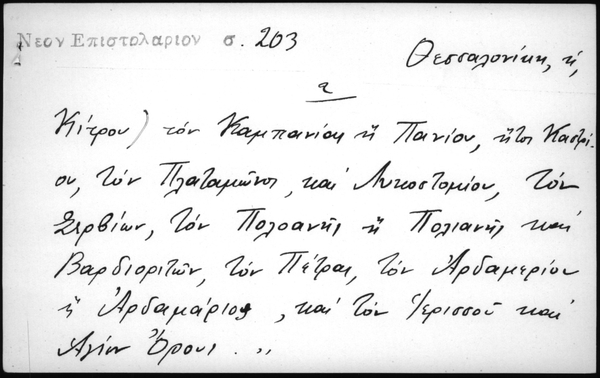 Νεον Επιστολαριον σ. 203
Θεσσαλονίκη, ἡ,
2
Κίτρου) τόν Καμπανίας ἤ Πανίου, ἤτοι Καστρί-
ου, τόν Πλαταμῶνος, καί Λυκοστομίου, τόν
Σερβίων, τόν Πολοανῆς ἤ Πολιανῆς καί
Βαρδιοριτῶν, τόν Πέτρας, τόν Ἀρδαμερίου
ἤ Ἀρδαμάριος, καί τόν Ἱερισσοῦ καί
Ἁγίου Ὄρους . „